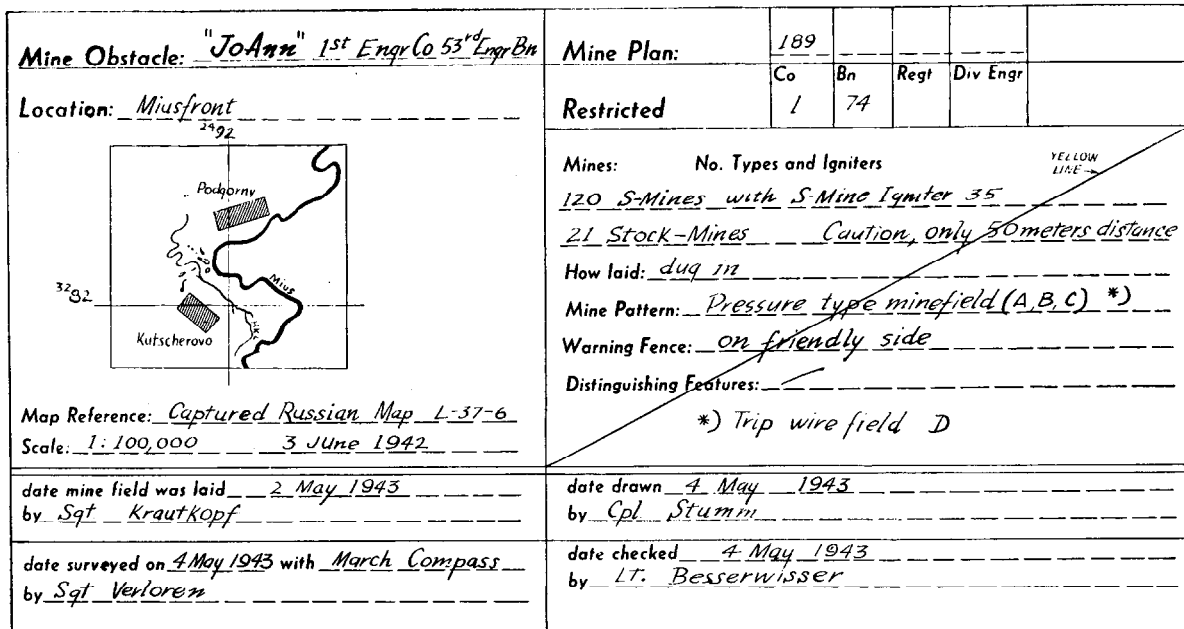 Mine Obstacle: "JoAnn" 1st Engr Co 53rd Engr Bn
Location: Miusfront
2492
Podgorny
3292
Mius
Kutscherovo
HKL
Map Reference: Captured Russian Map L-37-6
Scale: 1:100,000 3 June 1942
Mine Plan: 189
Co Bn Regt Div Engr
Restricted 1 74
Mines: No. Types and Igniters
YELLOW
LINE→
120 S-Mines with S-Mine Igniter 35
21 Stock-Mines Caution, only 50 meters distance
How laid: dug in
Mine Pattern: Pressure type minefield (A, B, C) *)
Warning Fence: on friendly side
Distinguishing Features:
*) Trip wire field D
date mine field was laid 2 May 1943
by Sgt Krautkopf
date drawn 4 May 1943
by Cpl Stumm
date surveyed on 4 May 1943 with March Compass
by Sgt Verloren
date checked 4 May 1943
by LT. Besserwisser